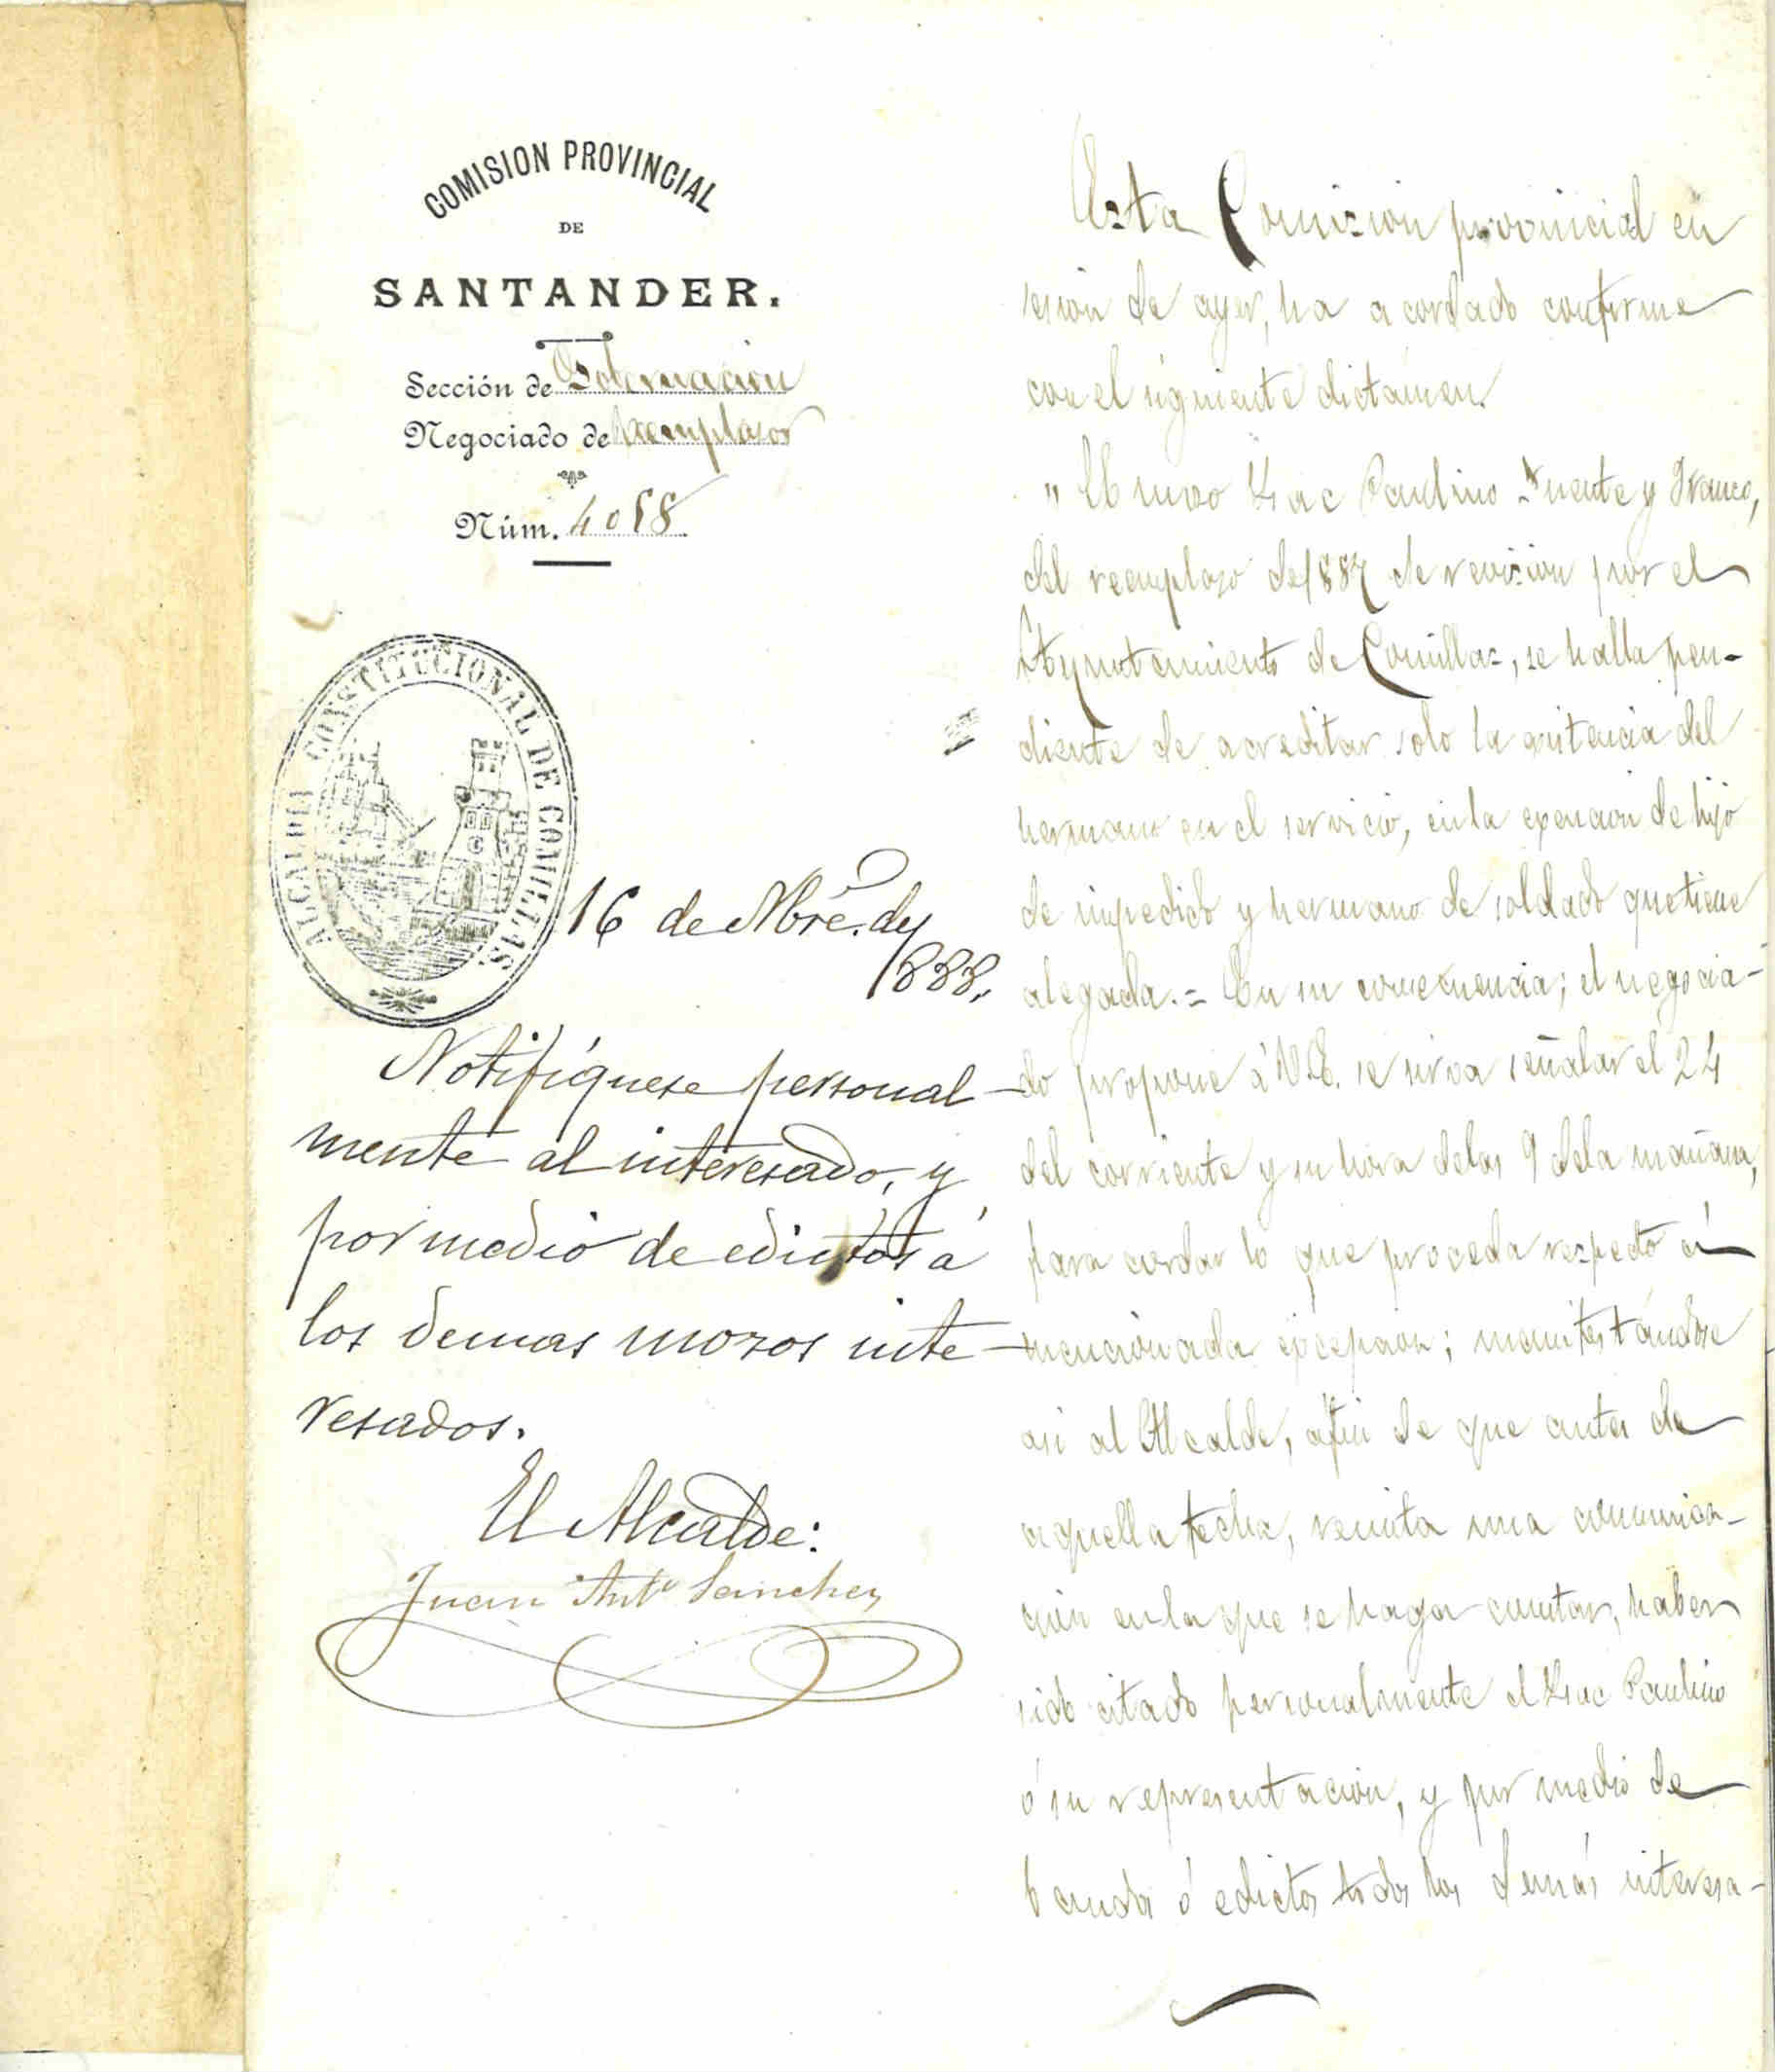 COMISION PROVINCIAL
DE
SANTANDER.
Sección de Gobernacion
Negociado de Reemplazos
Núm. 4058
ALCALDIA CONSTITUCIONAL DE COMILLAS
16 de Nbre. de
1888.
Notifíquese personal-
mente al interesado, y
por medio de edictos á
los demas mozos inte-
resados.
El Alcalde:
Juan Antº Sanchez
Esta Comision provincial en
sesion de ayer, ha acordado conforme
con el siguiente dictámen.
"El mozo Isac Paulino Fuente y Franco,
del reemplazo de 1887 de revision por el
Ayuntamiento de Comillas, se halla pen-
diente de acreditar solo la existencia del
hermano en el servicio, en la exencion de hijo
de impedido y hermano de soldado que tiene
alegada.= En su consecuencia; el negocia-
do propone á V.E. se sirva señalar el 24
del corriente y su hora de las 9 de la mañana,
para acordar lo que proceda respecto á
mencionada excepcion; manifestándose
asi al Alcalde, afin de que antes de
aquella fecha, remita una comunica-
cion en la que se haga constar, haber
sido citado personalmente el Isac Paulino
ó su representacion, y por medio de
bandos ó edictos todos los demás interesa-